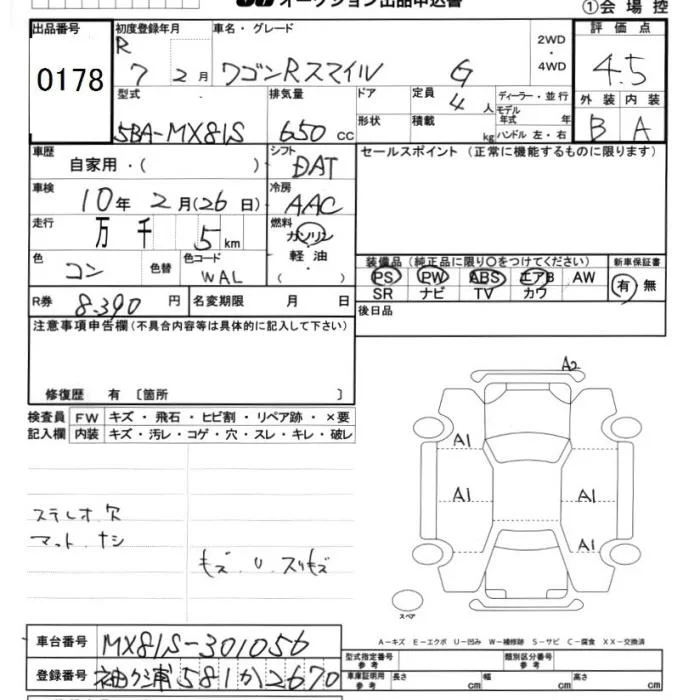 オークション出品申込書 ①会場控
出品番号 初度登録年月 車名・グレード 評価点
0178 R 7 2月 ワゴンRスマイル G 2WD・4WD 4.5
型式 排気量 ドア 定員 4人 ディーラー・並行 外装 内装
5BA-MX81S 650 cc 形状 積載 kg モデル年式 年 ハンドル 左・右 B A
車歴 自家用・( ) シフト DAT セールスポイント (正常に機能するものに限ります)
車検 10年 2月(26日) 冷房 AAC
走行 万 千 5 km 燃料 ガソリン
色 コン 色替 色コード WAL 軽油・( )
装備品 (純正品に限り○をつけてください) 新車保証書
PS PW ABS エアB AW 有・無
SR ナビ TV カワ
R券 8.390 円 名変期限 月 日 後日品
注意事項申告欄(不具合内容等は具体的に記入して下さい)
修復歴 有 〔箇所 〕
検査員 FW キズ・飛石・ヒビ割・リペア跡・×要
記入欄 内装 キズ・汚レ・コゲ・穴・スレ・キレ・破レ
A2
A1
A1 A1
A1
ステレオ穴
マット ナシ
キズ U スリキズ
スペア
A-キズ E-エクボ U-凹み W-補修跡 S-サビ C-腐食 XX-交換済
車台番号 MX81S-301056
型式指定番号 参考 類別区分番号 参考
登録番号 袖ケ浦 581 か 2670
車庫証明用 参考 長さ cm 幅 cm 高さ cm